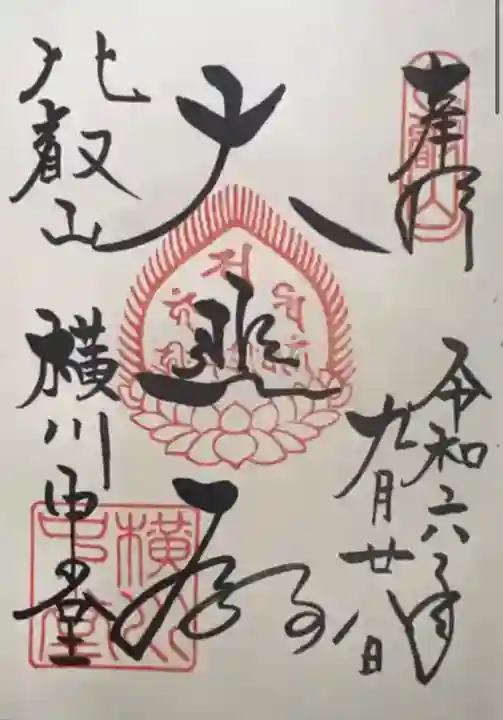 奉拝
令和六年
九月廿八日
大悲殿
比叡山 横川中堂
比叡山
横川
中堂